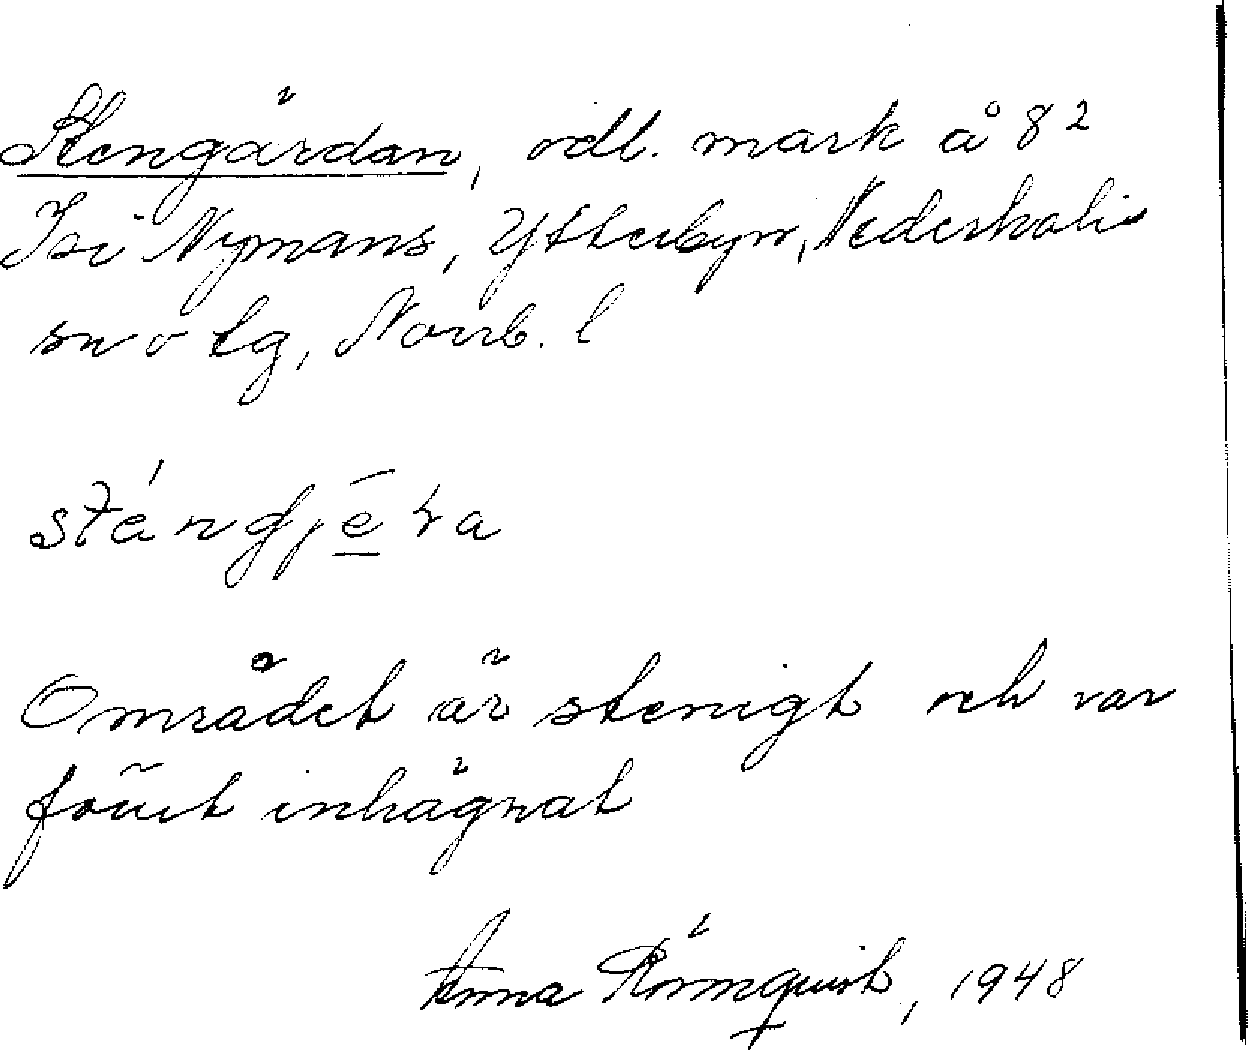 Stengärdan, odl. mark å 8²
Isi Nymans, Ytterbyn, Nederkalix
sn o tg, Norrb. l
sténgjēra
Området är stenigt och var
förut inhägnat
Anna Rönnquist, 1948